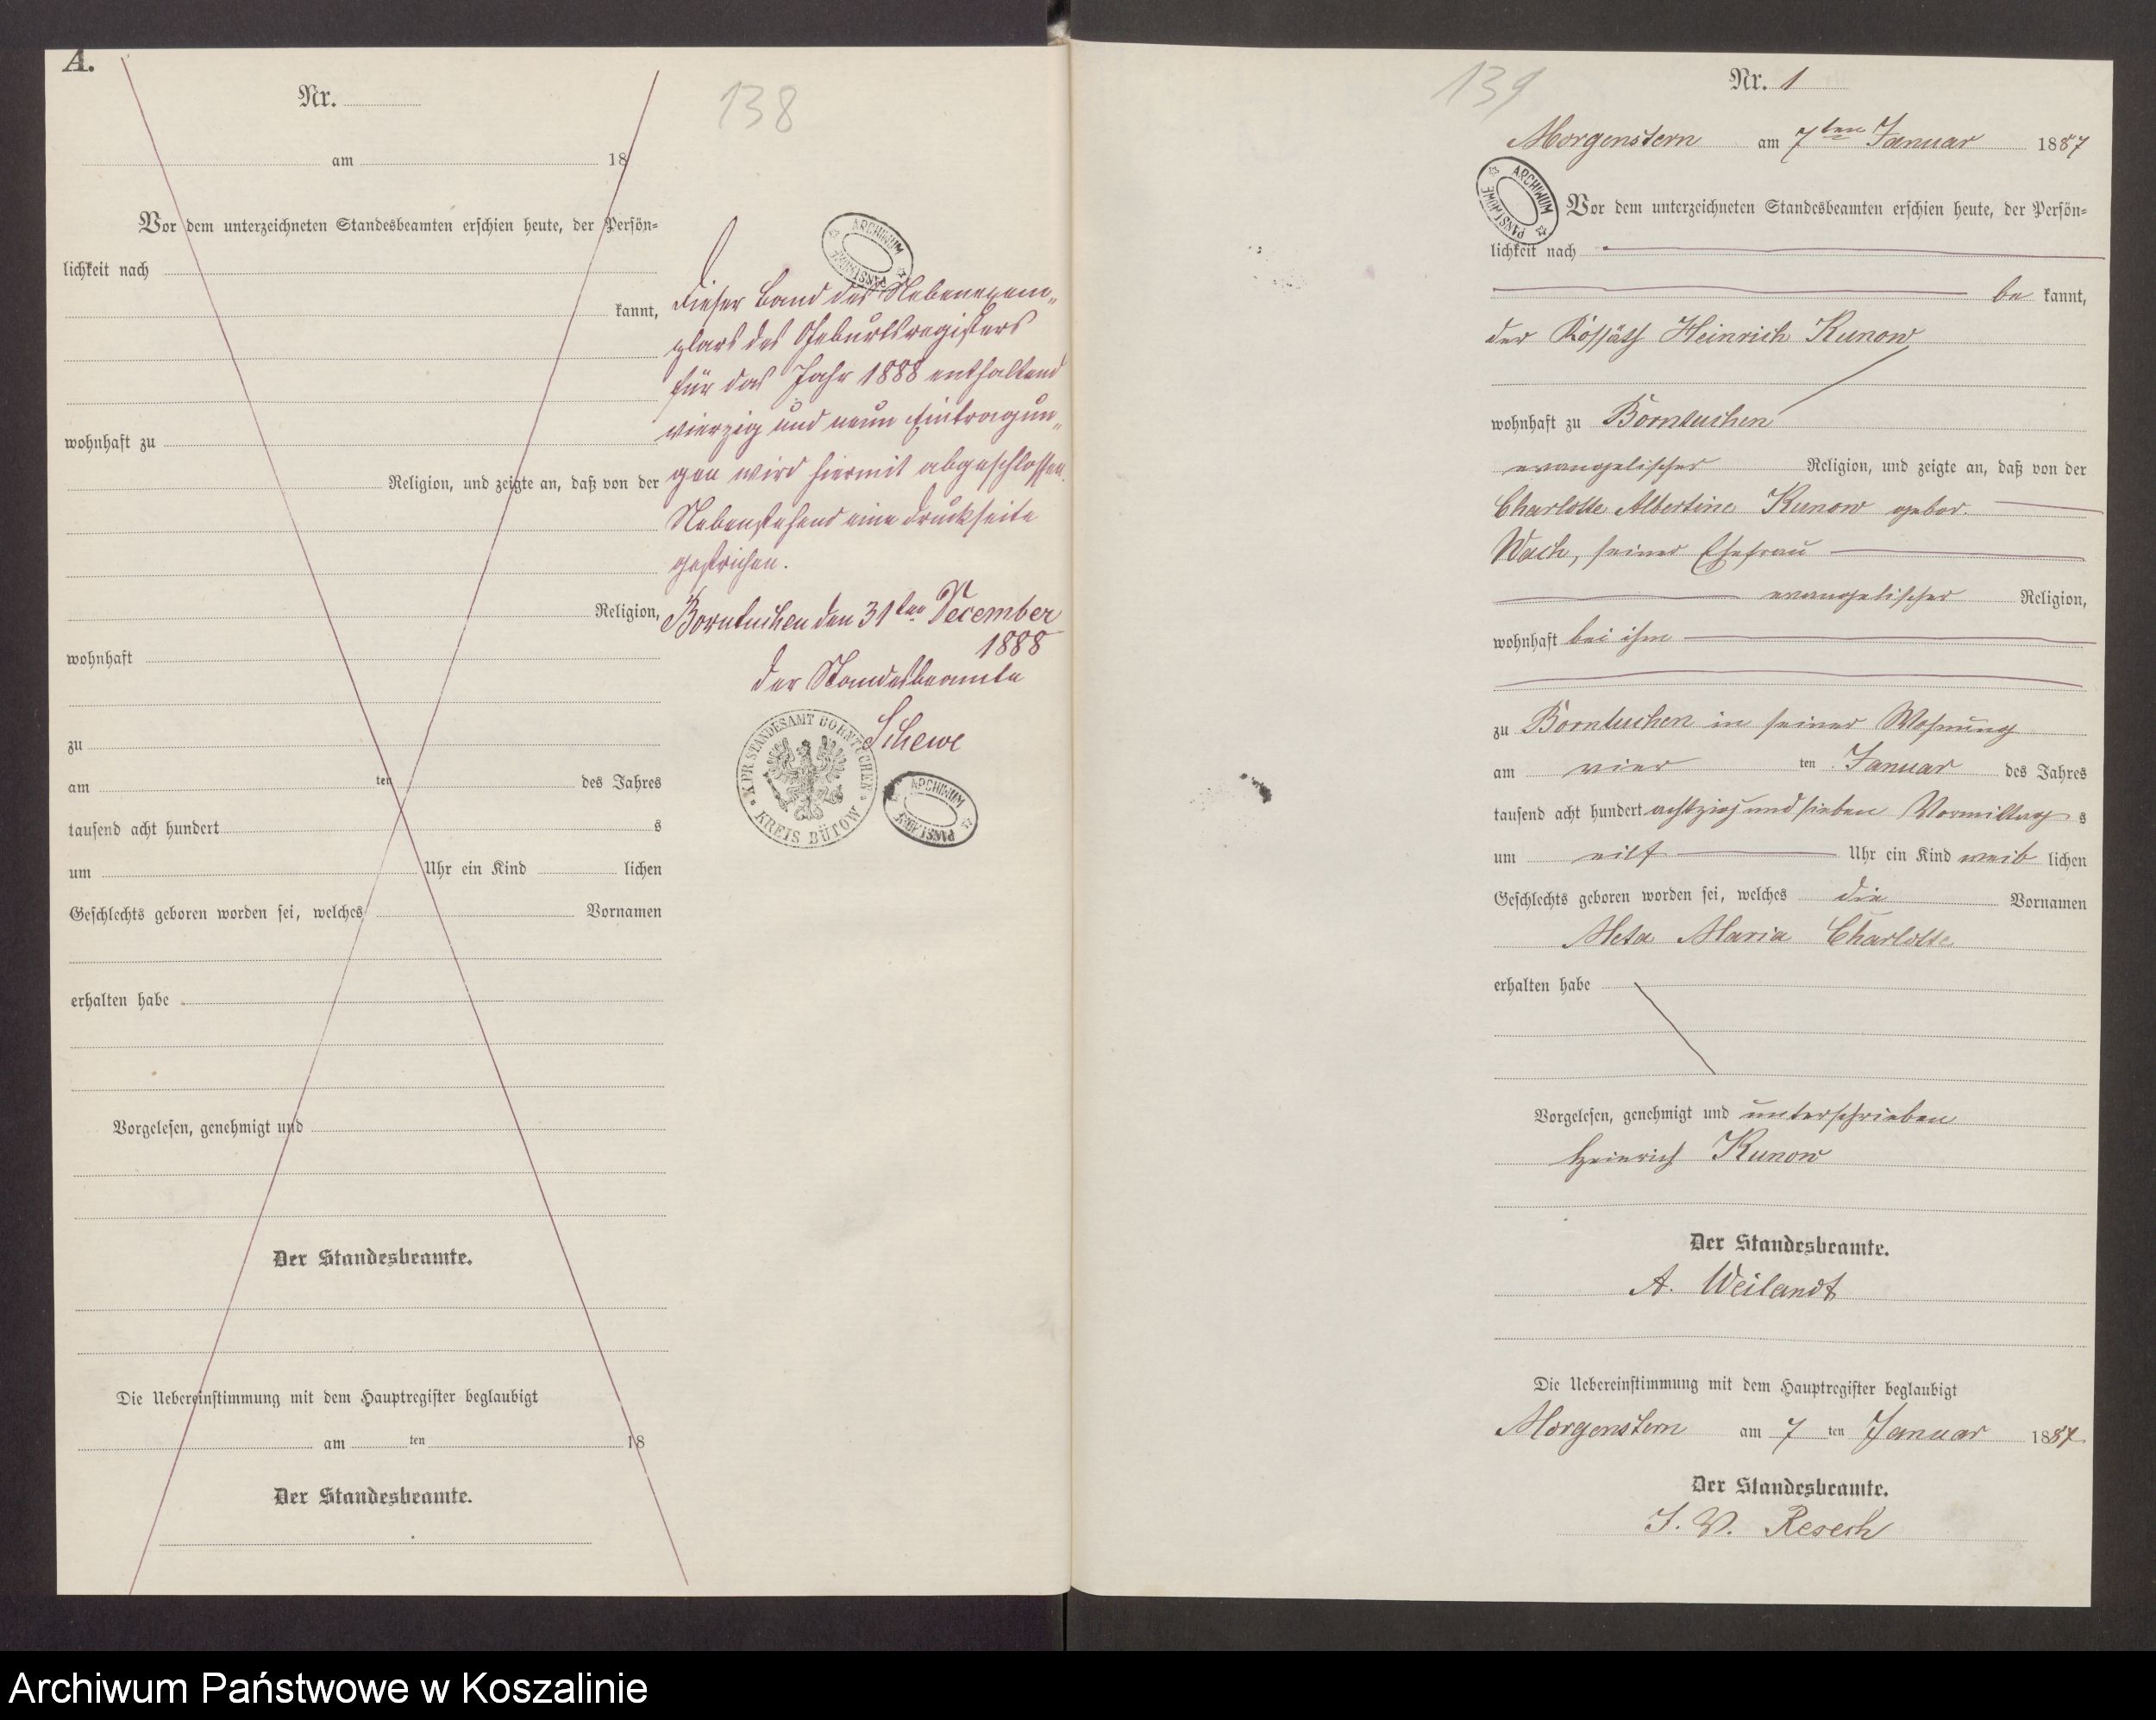 A.
Nr.
138
am 18
Vor dem unterzeichneten Standesbeamten erschien heute, der Persön=
lichkeit nach
kannt,
wohnhaft zu
Religion, und zeigte an, daß von der
Religion,
wohnhaft
zu
am ten des Jahres
tausend acht hundert s
um Uhr ein Kind lichen
Geschlechts geboren worden sei, welches Vornamen
erhalten habe
Vorgelesen, genehmigt und
Der Standesbeamte.
Die Uebereinstimmung mit dem Hauptregister beglaubigt
am ten 18
Der Standesbeamte.
ARCHIWUM PAŃSTWOWE
Dieser Band des Nebenexem„
plars des Geburtsregisters
für das Jahr 1888 enthaltend
vierzig und neun Eintragun„
gen wird hiermit abgeschlossen.
Nebenstehend eine Druckseite
gestrichen.
Borntuchen den 31ten December
1888
Der Standesbeamte
Schewe
K. PR. STANDESAMT BORNTUCHEN
KREIS BÜTOW
ARCHIWUM PAŃSTWOWE
139
Nr. 1
Morgenstern am 7ten Januar 1887
ARCHIWUM PAŃSTWOWE
Vor dem unterzeichneten Standesbeamten erschien heute, der Persön=
lichkeit nach
be kannt,
der Kossäth Heinrich Kunow
wohnhaft zu Borntuchen
evangelischer Religion, und zeigte an, daß von der
Charlotte Albertine Kunow gebor.
Wach, seiner Ehefrau
evangelischer Religion,
wohnhaft bei ihm
zu Borntuchen in seiner Wohnung
am vier ten Januar des Jahres
tausend acht hundert achtzig und sieben Vormittag s
um eilf Uhr ein Kind weib lichen
Geschlechts geboren worden sei, welches die Vornamen
Meta Maria Charlotte
erhalten habe
Vorgelesen, genehmigt und unterschrieben
Heinrich Kunow
Der Standesbeamte.
A. Weilandt
Die Uebereinstimmung mit dem Hauptregister beglaubigt
Morgenstern am 7 ten Januar 1887
Der Standesbeamte.
J. V. Resech
Archiwum Państwowe w Koszalinie